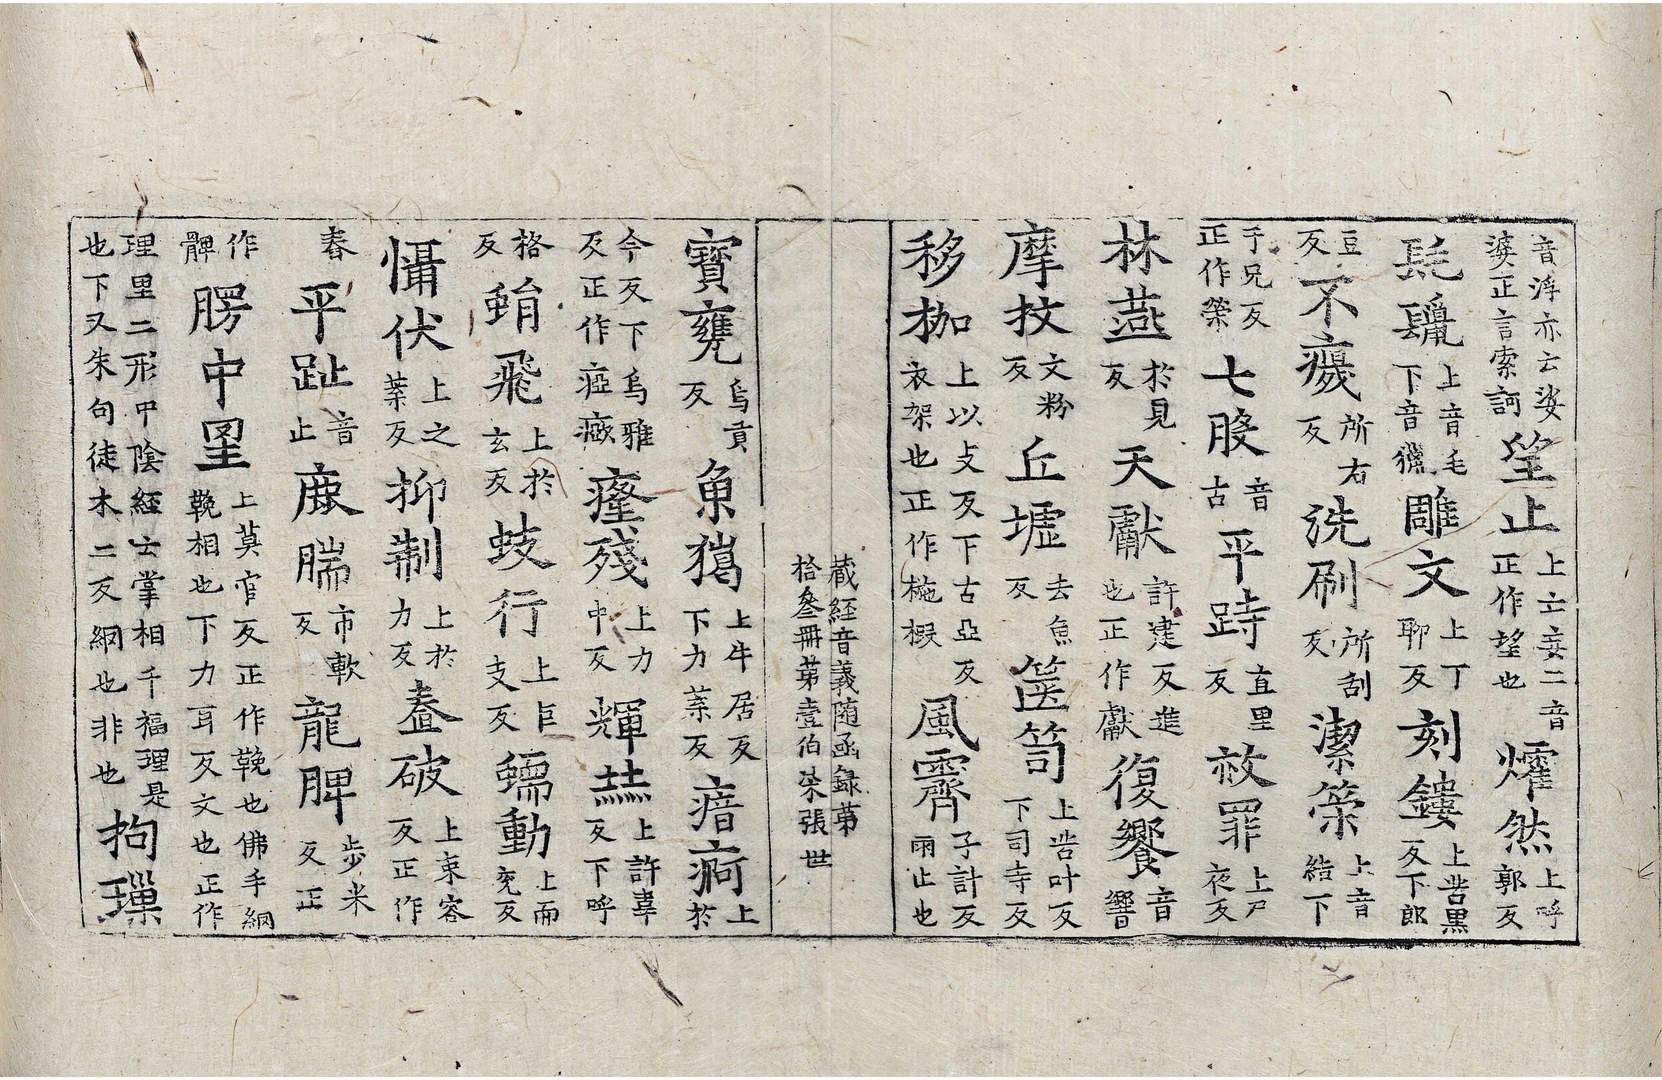 音浮亦云娑婆正言索訶望止上亡妄二音正作望也爠然上呼郭反
髦鬣上音毛下音獵雕文上丁聊反刻鏤上苦黑反下郎
豆反不癡所右反洗刷所刮反潔滎上音結下
于兄反正作榮七股音古平跱直里反赦罪上尸夜反
林燕於見反天獻許建反進也正作獻復饗音響
摩抆文粉反丘墟去魚反篋笥上苦叶反下司寺反
移枷上以支反下古亞反衣架也正作椸椵風霽子計反雨止也
藏經音義随函録第
拾叄冊第壹伯柒張 世
寶甕烏貢反魚獦上牛居反下力葉反瘖痾上於
今反下烏雅反正作瘂癥癃殘上力中反輝赫上許韋反下呼
格反蜎飛上於玄反蚑行上巨支反蠕動上而兖反
慴伏上之葉反抑制上於力反舂破上束容反正作
舂平趾音止鹿腨市軟反龍脾步米反正
作髀𦜕中𦊆上莫官反正作鞔也佛手網鞔相也下力耳反文也正作
理里二形中陰經云掌相千福理是也下又朱句徒木二反網也非也拘璅